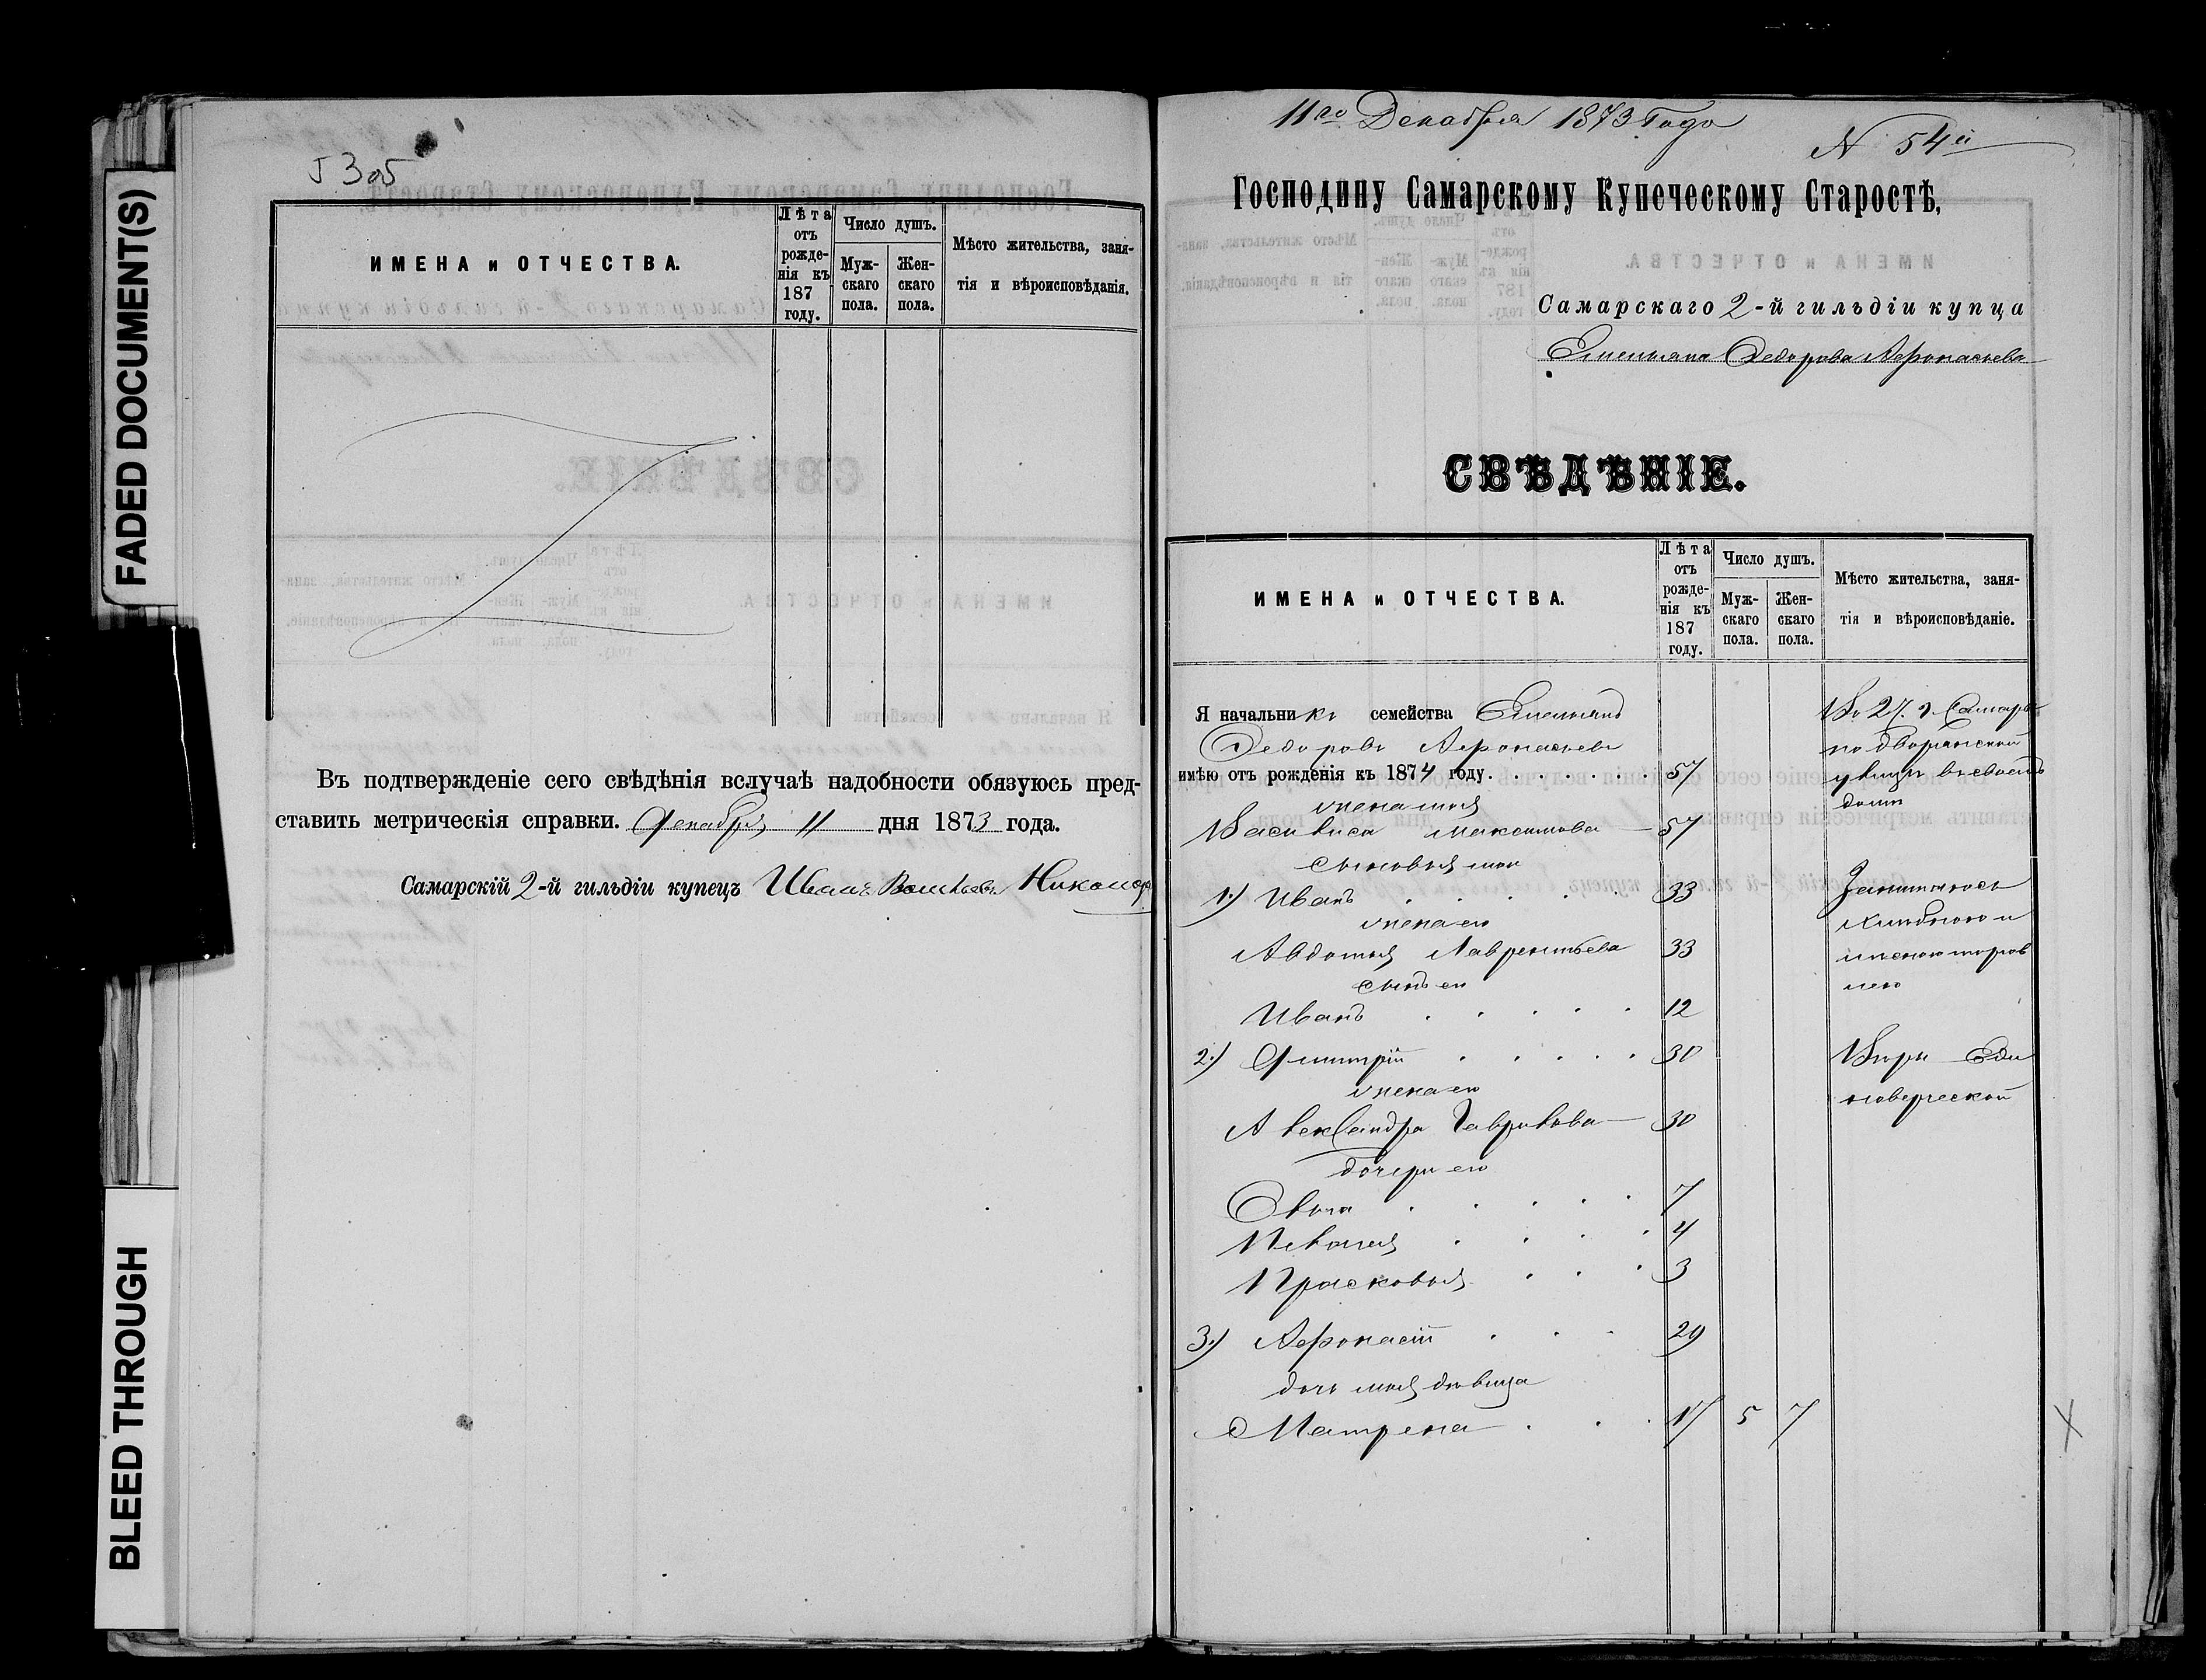 FADED DOCUMENT(S)
BLEED THROUGH
ИМЕНА и ОТЧЕСТВА.
Лѣта отъ рожденія къ 187 году.
Число душъ.
Мужскаго пола.
Женскаго пола.
Мѣсто жительства, заня-
тія и вѣроисповѣданія.
Въ подтвержденіе сего свѣдѣнія вслучаѣ надобности обязуюсь пред-
ставить метрическія справки. Декабря 11 дня 1873 года.
Самарскій 2-й гильдіи купецъ Иванъ
11го Декабря 1873 Года
N 54й
Господину Самарскому Купеческому Старостѣ,
Самарскаго 2-й гильдіи купца
Емельяна Федорова Афонасьева
СВѢДѢНІЕ.
ИМЕНА и ОТЧЕСТВА.
Лѣта отъ рожденія къ 187 году.
Число душъ.
Мужскаго пола.
Женскаго пола.
Мѣсто жительства, заня-
тія и вѣроисповѣданіе.
Я начальникъ семейства Емельянъ
Федоровъ Афонасьевъ
имѣю отъ рожденія къ 1874 году. 57
Во 2 ч. г. Самары
по дворянской
улицы
доми
жена моя
Василиса Максимова 57
сыновья мои
1.) Иванъ 33
жена его
Авдотья Лаврентьева 33
сынъ ея
Иванъ 12
Занимаюсь
хлѣбною и
лесною торгов
лею
2.) Дмитрій 30
жена его
Александра Гаврилова 30
Вѣры Еди
новерческой
дочери его
Ольга 7
Пелагея 4
Прасковья 3
3.) Афонасій 29
дочь моя дѣвица
Матрена 17 5 7